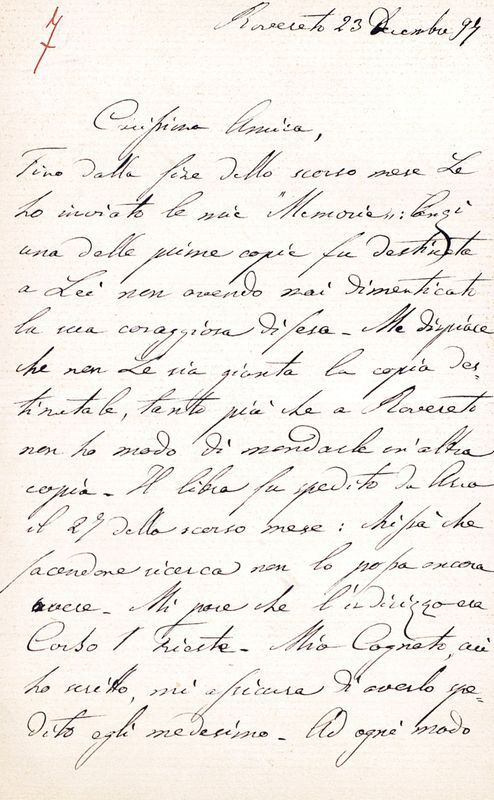 7
Rovereto 23 Decembre 97
Carissima Amica,
Fino dalla fine dello scorso mese Le
ho inviato le mie "Memorie„: anzi
una delle prime copie fu destinata
a Lei non avendo mai dimenticato
la sua coraggiosa difesa – Mi dispiace
che non Le sia giunta la copia des-
tinatale, tanto più che a Rovereto
non ho modo di mandarle un'altra
copia – Il libro fu spedito da
il 27 dello scorso mese: chissà che
facendone ricerca non lo possa ancora
avere – Mi pare che l'indirizzo era
Corso 1 Trieste – Mio Cognato, cui
ho scritto, mi assicura di averlo spe-
dito egli medesimo – Ad ogni modo